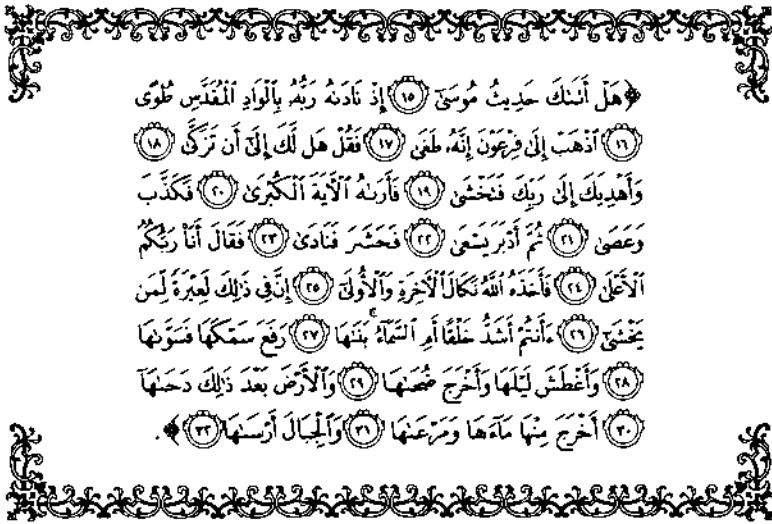 ﴿هَلْ أَتَىٰكَ حَدِيثُ مُوسَىٰٓ ﴿١٥﴾ إِذْ نَادَىٰهُ رَبُّهُۥ بِٱلْوَادِ ٱلْمُقَدَّسِ طُوًى
﴿١٦﴾ ٱذْهَبْ إِلَىٰ فِرْعَوْنَ إِنَّهُۥ طَغَىٰ ﴿١٧﴾ فَقُلْ هَل لَّكَ إِلَىٰٓ أَن تَزَكَّىٰ ﴿١٨﴾
وَأَهْدِيَكَ إِلَىٰ رَبِّكَ فَتَخْشَىٰ ﴿١٩﴾ فَأَرَىٰهُ ٱلْـَٔايَةَ ٱلْكُبْرَىٰ ﴿٢٠﴾ فَكَذَّبَ
وَعَصَىٰ ﴿٢١﴾ ثُمَّ أَدْبَرَ يَسْعَىٰ ﴿٢٢﴾ فَحَشَرَ فَنَادَىٰ ﴿٢٣﴾ فَقَالَ أَنَا۠ رَبُّكُمُ
ٱلْأَعْلَىٰ ﴿٢٤﴾ فَأَخَذَهُ ٱللَّهُ نَكَالَ ٱلْـَٔاخِرَةِ وَٱلْأُولَىٰٓ ﴿٢٥﴾ إِنَّ فِى ذَٰلِكَ لَعِبْرَةً لِّمَن
يَخْشَىٰٓ ﴿٢٦﴾ ءَأَنتُمْ أَشَدُّ خَلْقًا أَمِ ٱلسَّمَآءُ ۚ بَنَىٰهَا ﴿٢٧﴾ رَفَعَ سَمْكَهَا فَسَوَّىٰهَا
﴿٢٨﴾ وَأَغْطَشَ لَيْلَهَا وَأَخْرَجَ ضُحَىٰهَا ﴿٢٩﴾ وَٱلْأَرْضَ بَعْدَ ذَٰلِكَ دَحَىٰهَآ
﴿٣٠﴾ أَخْرَجَ مِنْهَا مَآءَهَا وَمَرْعَىٰهَا ﴿٣١﴾ وَٱلْجِبَالَ أَرْسَىٰهَا ﴿٣٢﴾﴾.